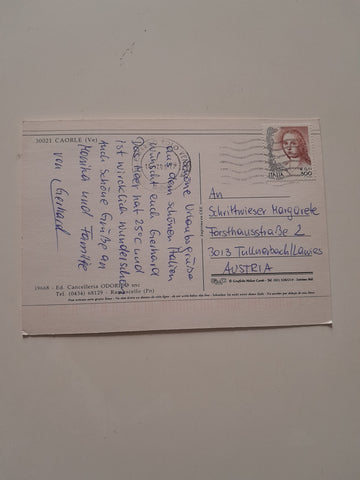 30021 CAORLE (Ve)
Schöne Urlaubsgrüße
aus dem schönen Italien
wünscht euch Gerhard
Das Meer hat 25°C und
ist wirklich wunderschön
Auch schöne Grüße an
Monika und Familie
von Gerhard
ITALIA
800
An
Schriftwieser Margarete
Forsthausstraße 2
3013 Tullnerbach/Lawies
AUSTRIA
19668 - Ed. Cancelleria ODORICO snc
Tel. (0434) 68129 - Ramuscello (Pn)